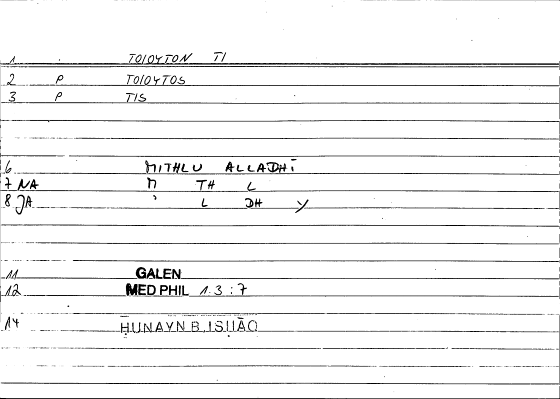 1 . TOIOYTON TI
2 P TOIOYTOS
3 P TIS
6 MITHLU ALLADHĪ
7 NA M TH L
8 JA ʾ L DH Y
11 GALEN
12 MED PHIL 1.3 : 7
14 ḤUNAYN B. ISḤĀQ